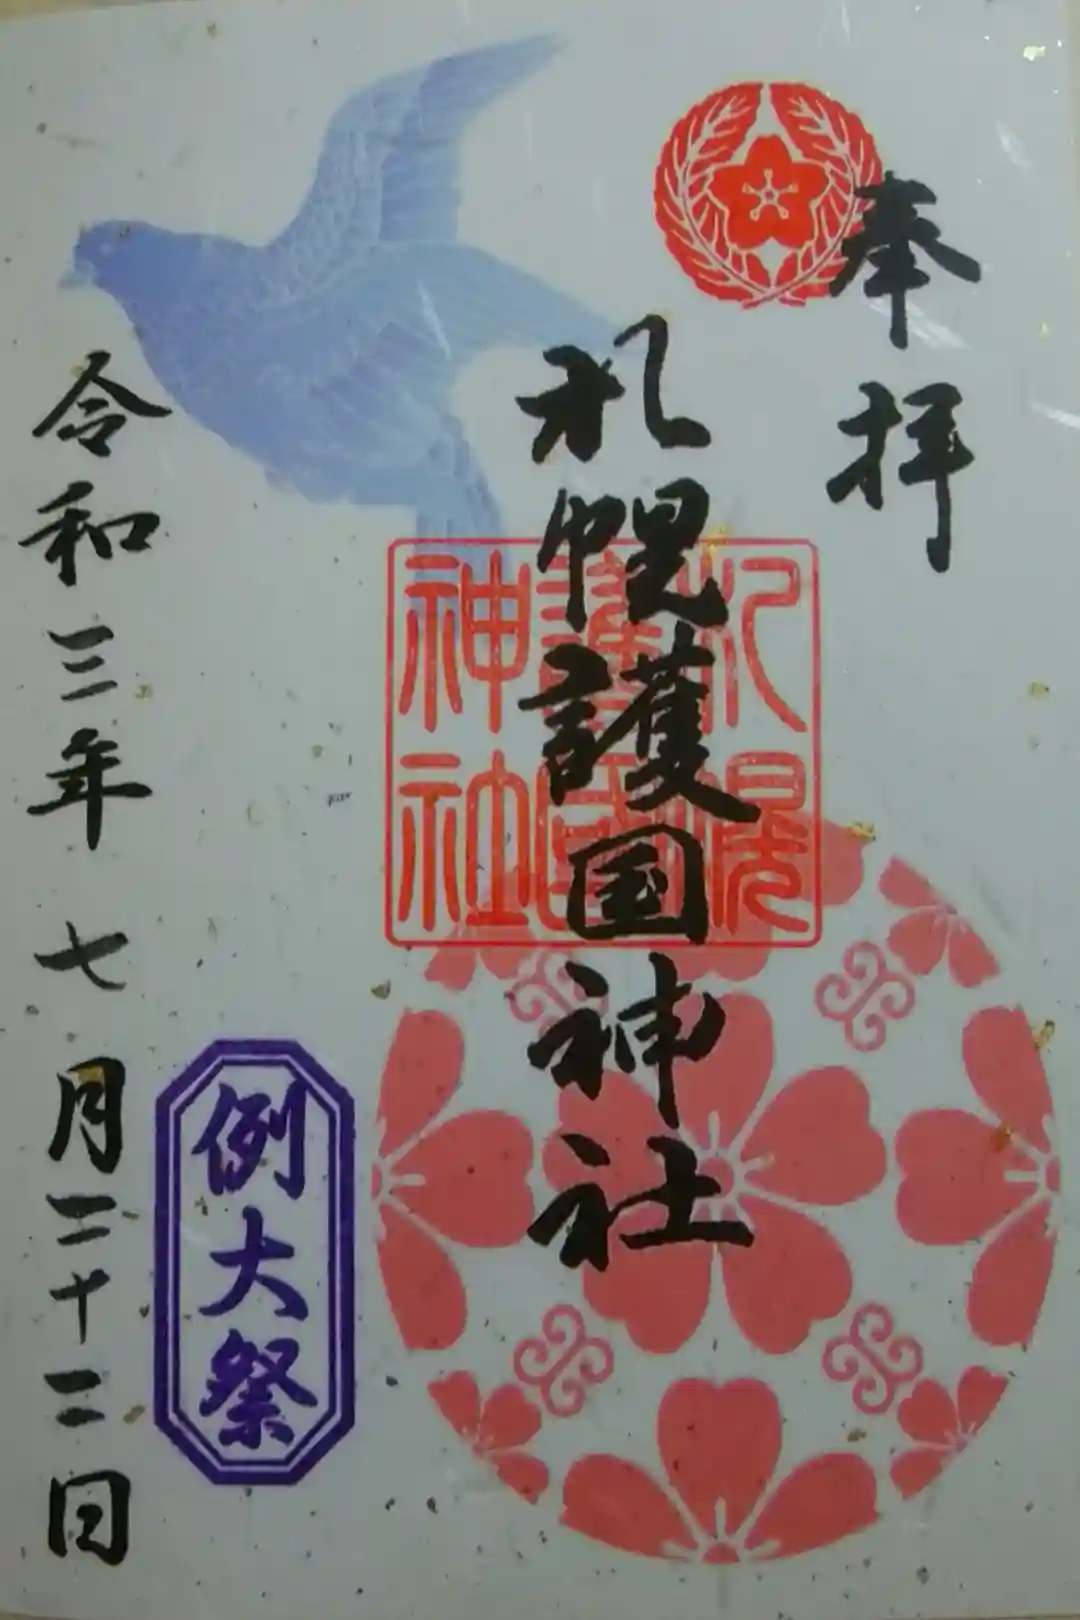 奉拝
札幌護国神社
札幌
護國
神社
例大祭
令和三年 七月二十二日